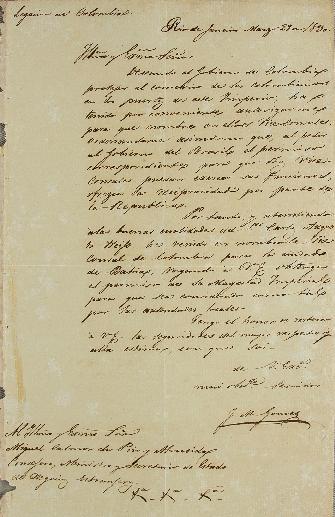 Legacion de Colombia
Rio de Janeiro Marzo 29 de 1830.
Deseando el Gobierno de Colombia
proteger el comercio de los Colombianos
en los puertos de este Imperio, ha
tenido por conveniente autorizarme
para que nombre en ellos Viceconsules,
que, al pedir
al Gobierno del Brasil el permiso
correspondiente para que los Vice-
consules puedan ejercer sus funciones,
ofrezca la reciprocidad por parte de
la Republica.
Por tanto, y atendiendo
a las buenas cualidades del Carlos
he venido en nombrarle Vice
Consul de Colombia para la ciudad
de Bahia,
el permiso de Su Magestad Imperial
para que sea reconocido como tal
por las autoridades locales.
Tengo el honor de reiterar
a V.E. las seguridades del mayor respeto y
alta estima, con que soi
de V. Exa.
mui obte. servidor
J. M. Gomez
Al Ilmo y Exmo Señor
Miguel Calmon du Pin y Almeida
Consejero, Ministro y Secretario de Estado